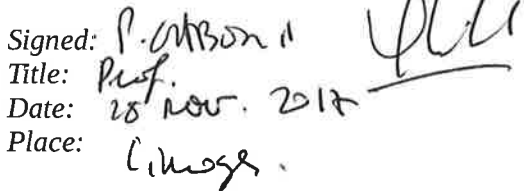 Signed: P.
Title: Prof.
Date: 28 nov. 2017
Place: Limoges.